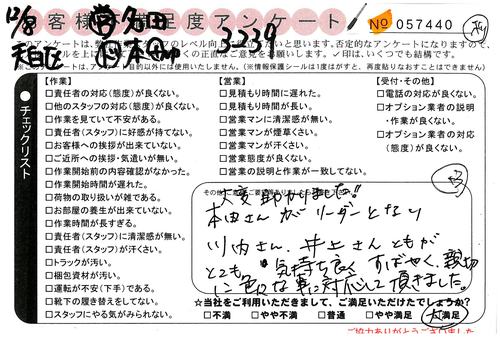 お客様満足度アンケート
No 057440
12/8
3239
天白区
【作業】
□責任者の対応(態度)が良くない。
□他のスタッフの対応(態度)が良くない。
□作業を見ていて不安がある。
□責任者(スタッフ)に好感が持てない。
□お客様への挨拶が出来ていない。
□ご近所への挨拶・気遣いが無い。
□作業開始前の内容確認がなかった。
□作業開始時間が遅れた。
□荷物の取り扱いが雑である。
□お部屋の養生が出来ていない。
□作業時間が長すぎる。
□責任者(スタッフ)に清潔感が無い。
□責任者(スタッフ)が汗くさい。
□トラックが汚い。
□梱包資材が汚い。
□運転が不安(下手)である。
□靴下の履き替えをしてない。
□スタッフにやる気がみられない。
【営業】
□見積もり時間に遅れた。
□見積もり時間が長い。
□営業マンに清潔感が無い。
□営業マンが煙草くさい。
□営業マンが汗くさい。
□営業態度が良くない。
□営業の説明と作業が一致してない。
【受付・その他】
□電話の対応が良くない。
□オプション業者の説明
・作業が良くない。
□オプション業者の対応
(態度)が良くない。
●チェックリスト
大変助かりました!!
本田さんがリーダーとなり
川内さん、井上さんともが
とても気持ち良く すばやく、親切
に色々な事に対応して頂きました。
☆当社をご利用いただきまして、ご満足いただけたでしょうか?
□不満 □やや不満 □普通 □やや満足 □大満足
ご協力ありがとうございました